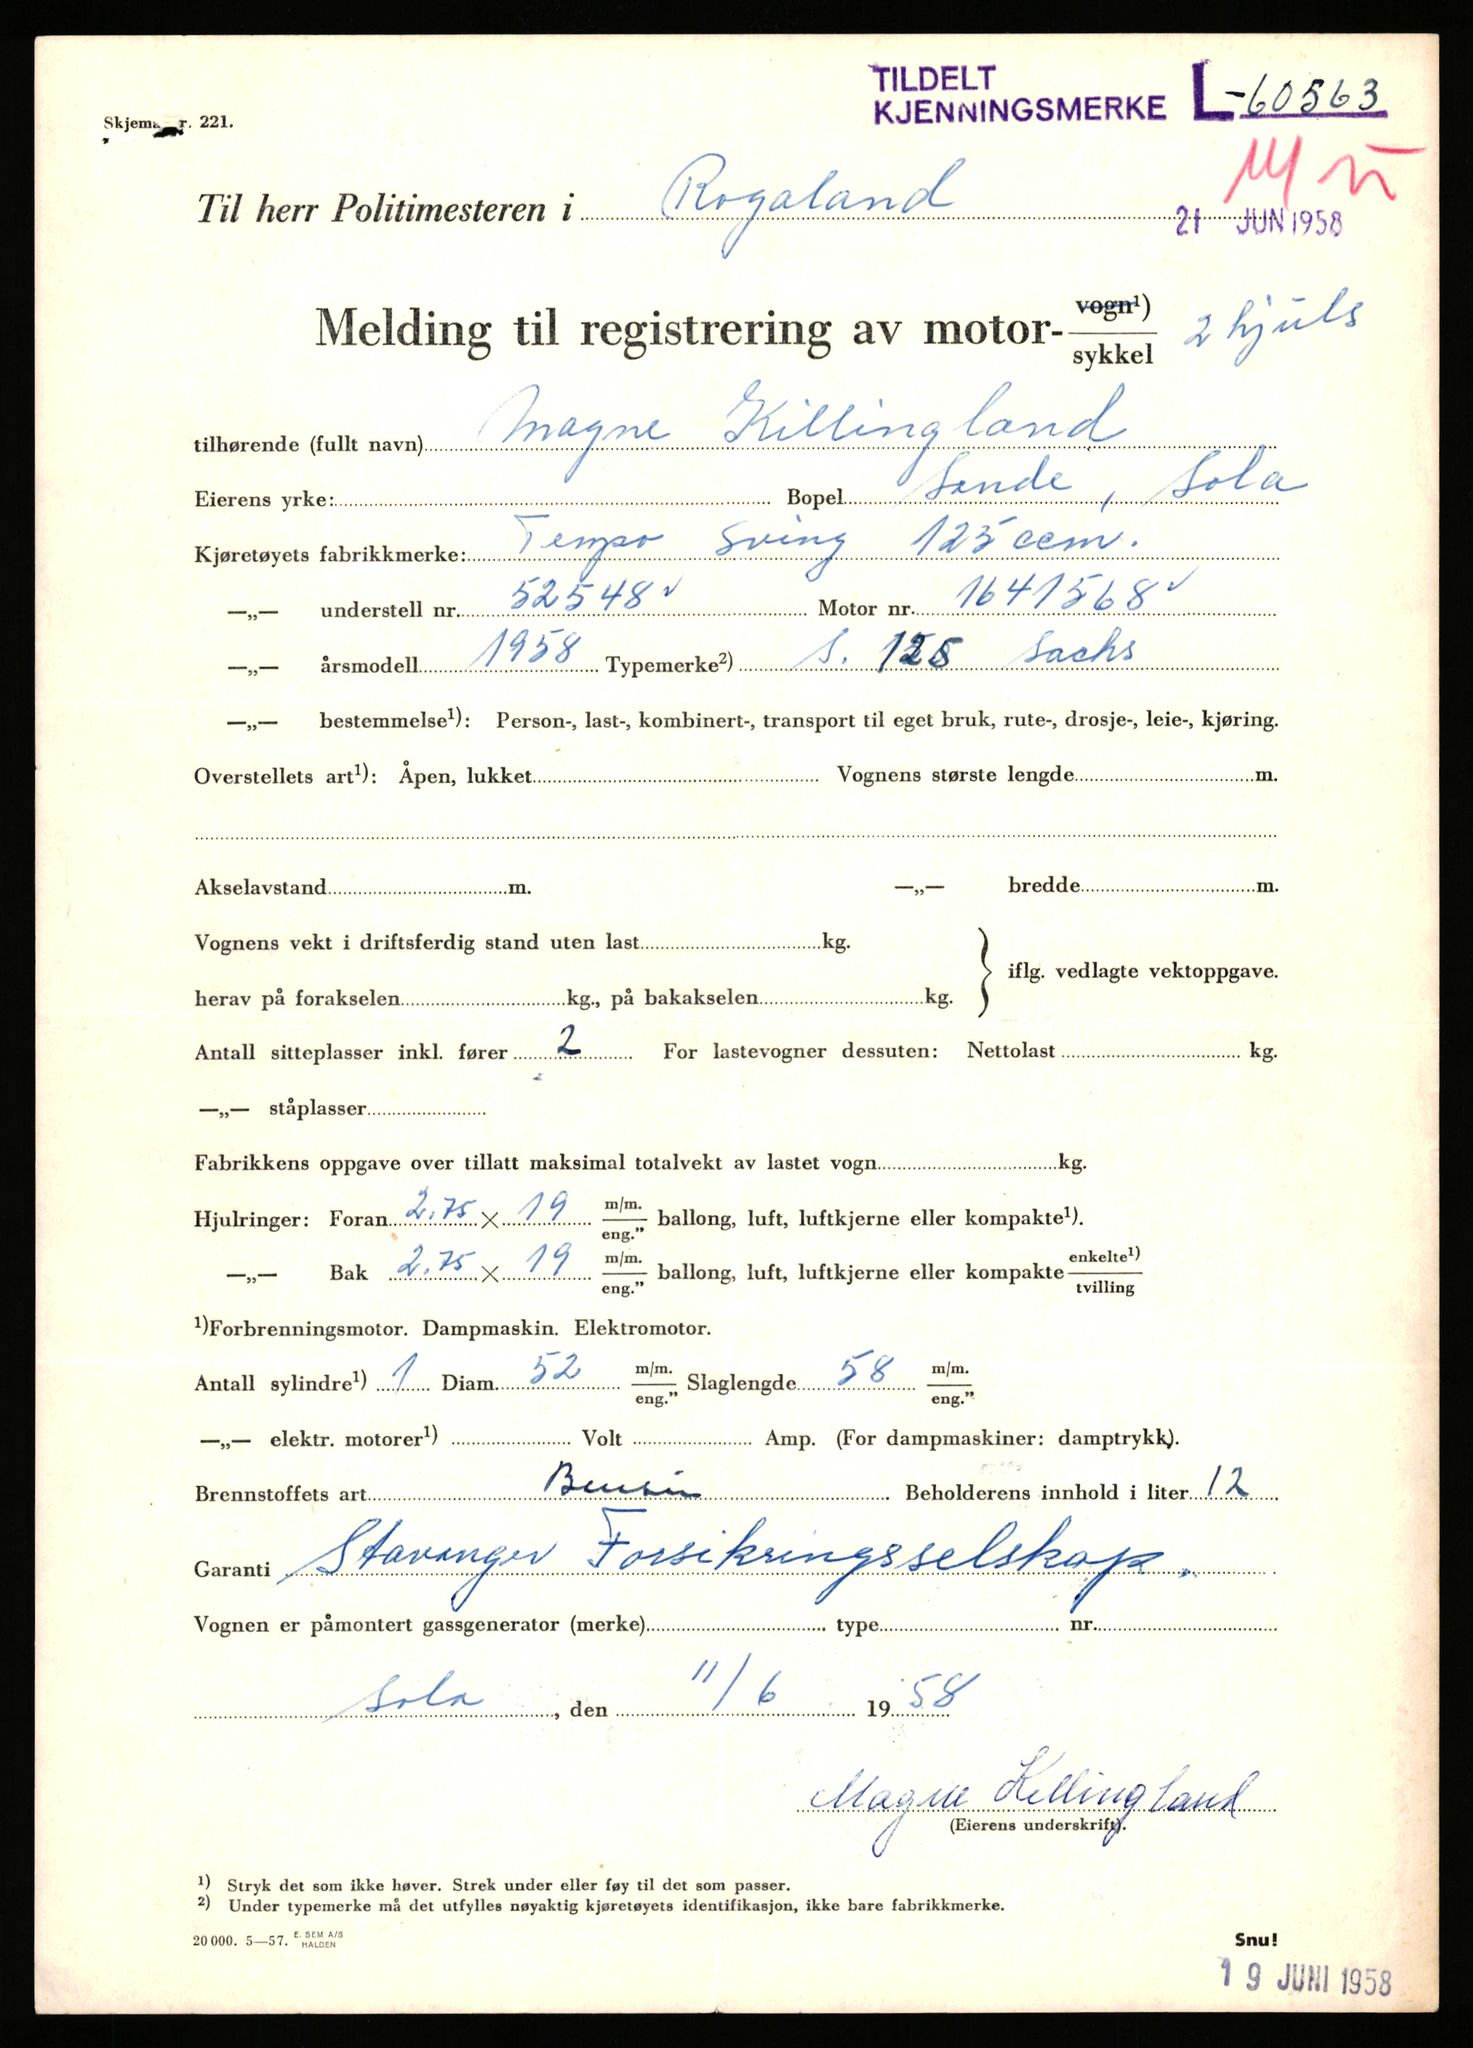 TILDELT
KJENNINGSMERKE L-60563
Skjema nr. 221.
Til herr Politimesteren i Rogaland
21 JUN 1958
Melding til registrering av motor- vogn¹) / sykkel 2 hjuls
tilhørende (fullt navn) Magne Killingland
Eierens yrke: Bopel Sande, Sola
Kjøretøyets fabrikkmerke: Tempo Sving 125 ccm.
—„— understell nr. 52548 Motor nr. 1641568
—„— årsmodell 1958 Typemerke²) S. 125 Sachs
—„— bestemmelse¹): Person-, last-, kombinert-, transport til eget bruk, rute-, drosje-, leie-, kjøring.
Overstellets art¹): Åpen, lukket Vognens største lengde m.
Akselavstand m. —„— bredde m.
Vognens vekt i driftsferdig stand uten last kg.
iflg. vedlagte vektoppgave.
herav på forakselen kg., på bakakselen kg.
Antall sitteplasser inkl. fører 2 For lastevogner dessuten: Nettolast kg.
—„— ståplasser
Fabrikkens oppgave over tillatt maksimal totalvekt av lastet vogn kg.
Hjulringer: Foran 2.75 × 19 m/m. / eng.” ballong, luft, luftkjerne eller kompakte¹).
—„— Bak 2.75 × 19 m/m. / eng.” ballong, luft, luftkjerne eller kompakte enkelte¹) / tvilling
¹)Forbrenningsmotor. Dampmaskin. Elektromotor.
Antall sylindre¹) 1 Diam. 52 m/m. / eng.” Slaglengde 58 m/m. / eng.”
—„— elektr. motorer¹) Volt Amp. (For dampmaskiner: damptrykk).
Brennstoffets art Bensin Beholderens innhold i liter 12
Garanti Stavanger Forsikringsselskap.
Vognen er påmontert gassgenerator (merke) type nr.
Sola, den 11/6 1958
Magne Killingland
(Eierens underskrift).
¹) Stryk det som ikke høver. Strek under eller føy til det som passer.
²) Under typemerke må det utfylles nøyaktig kjøretøyets identifikasjon, ikke bare fabrikkmerke.
20 000. 5—57. E. SEM A/S HALDEN
Snu!
19 JUNI 1958